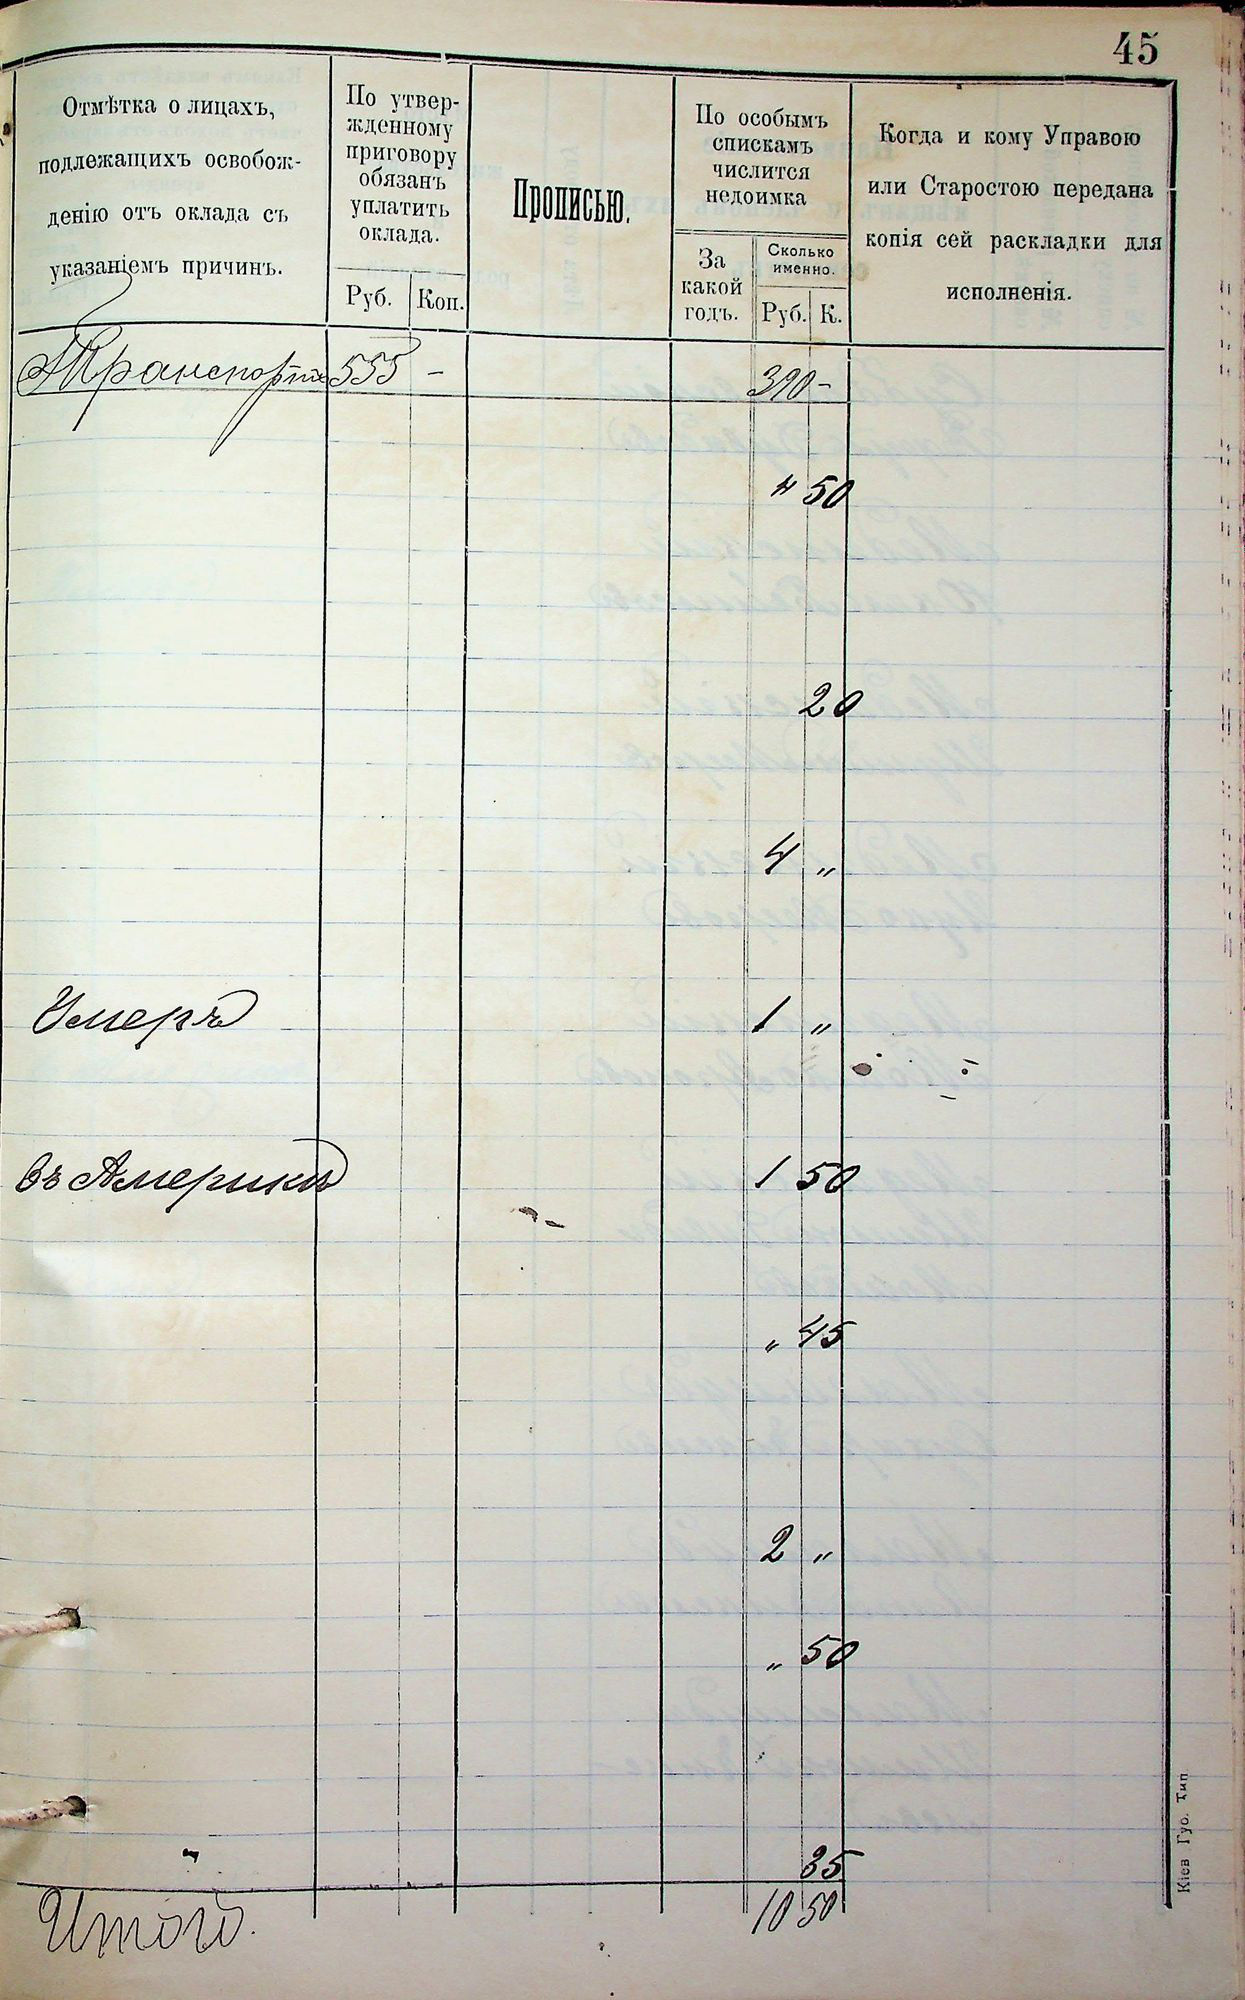 45
Отмѣтка о лицахъ,
подлежащихъ освобож-
денію отъ оклада съ
указаніемъ причинъ.
По утвер-
жденному
приговору
обязанъ
уплатить
оклада.
Руб. Коп.
Прописью.
По особымъ
спискамъ
числится
недоимка
За
какой
годъ.
Сколько
именно.
Руб. К.
Когда и кому Управою
или Старостою передана
копія сей раскладки для
исполненія.
Транспортъ 555 - 390 -
" 50
20
4 "
Умеръ 1 "
въ Америкѣ 1 50
" 45
2 "
" 50
35
Итого. 10 50
Кіев Губ. Тип